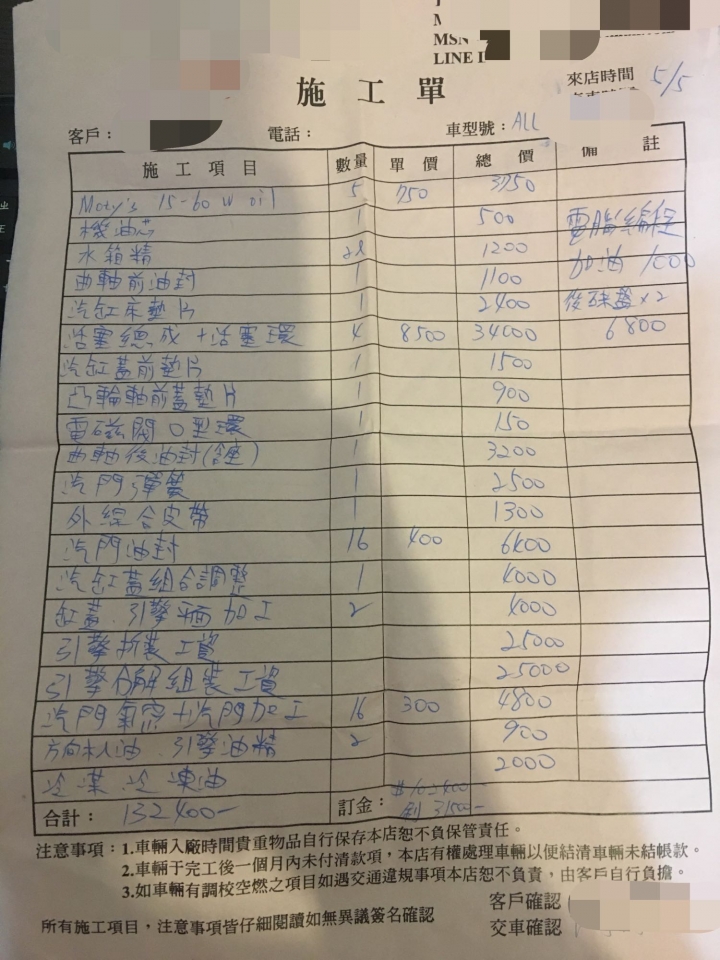 MSN
LINE I
施工單
來店時間 5/5
客戶： 電話： 車型號：ALL
施工項目 數量 單價 總價 備註
Moty's 15-60 w oil 5 750 3750
機油芯 1 500 電腦編程
水箱精 2l 1200 加油 1000
曲軸前油封 1 1100
汽缸床墊片 1 2400 ×2
活塞總成+活塞環 4 8500 34000 6800
汽缸蓋前墊片 1 1500
凸輪軸前蓋墊片 1 900
電磁閥O型環 1 150
曲軸後油封(含座) 1 3200
汽門彈簧 1 2500
外綜合皮帶 1 1300
汽門油封 16 400 6400
汽缸蓋組合調整 1 4000
缸蓋.引擎平面加工 2 4000
引擎拆裝工資 25000
引擎分解組裝工資 25000
汽門氣密+汽門加工 16 300 4800
方向機油.引擎油精 2 900
冷煤.冷凍油 2000
合計：132400- 訂金： 31500-
注意事項：1.車輛入廠時間貴重物品自行保存本店恕不負保管責任。
2.車輛于完工後一個月內未付清款項，本店有權處理車輛以便結清車輛未結帳款。
3.如車輛有調校空燃之項目如遇交通違規事項本店恕不負責，由客戶自行負擔。
客戶確認
所有施工項目，注意事項皆仔細閱讀如無異議簽名確認
交車確認